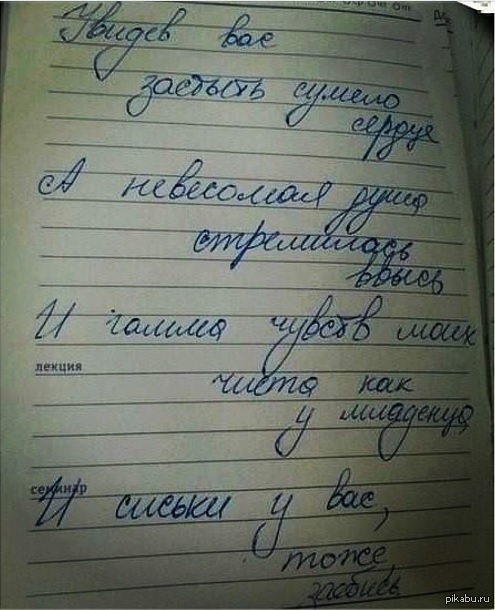 Увидев вас
застыть сумело
сердце
А невесомая душа
стремилась
ввысь
И гамма чувств моих
лекция
чиста как
у младенца
семинар
И сиськи у вас,
тоже
заебись
pikabu.ru